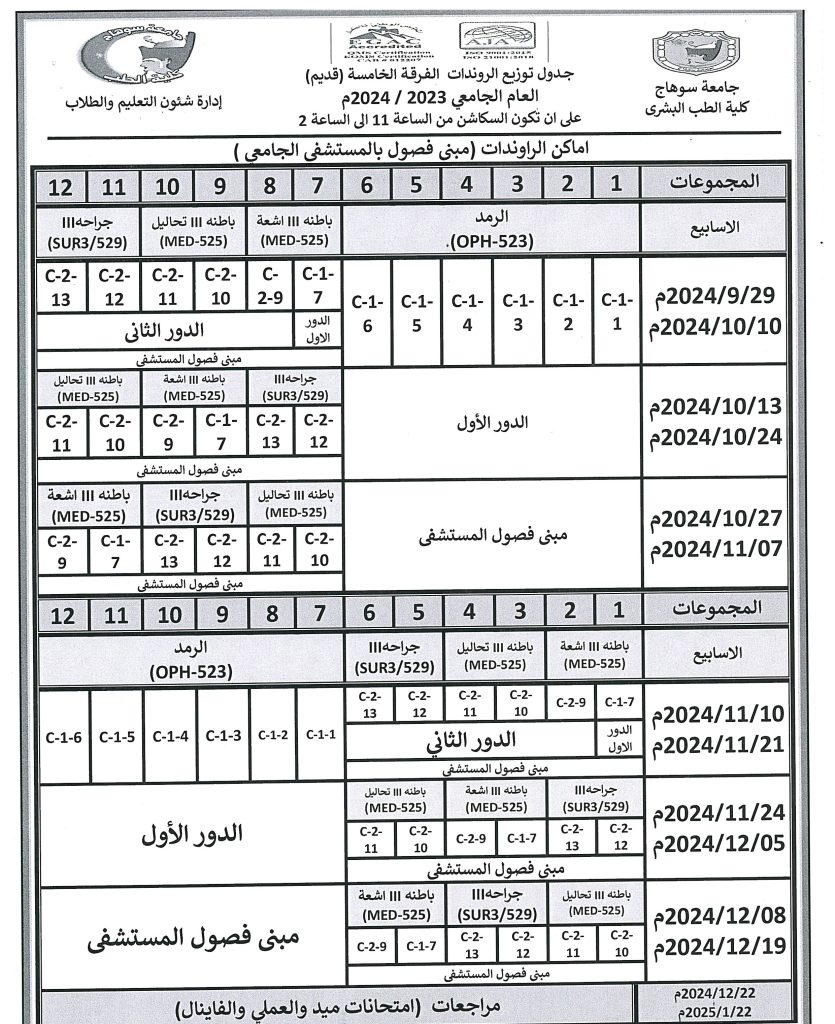 جامعة سوهاج
كلية الطب
إدارة شئون التعليم والطلاب
EGAC
Accredited
QMS Certification
EOHMS Certification
CAB # 012207
AJA
ISO 9001:2015
ISO 21001:2018
جامعة سوهاج
كلية الطب البشرى
جدول توزيع الروندات الفرقة الخامسة (قديم)
العام الجامعي 2023 / 2024م
على ان تكون السكاشن من الساعة 11 الى الساعة 2
اماكن الراوندات (مبنى فصول بالمستشفى الجامعي )
المجموعات 1 2 3 4 5 6 7 8 9 10 11 12
الاسابيع
الرمد
(OPH-523).
باطنه III اشعة
(MED-525)
باطنه III تحاليل
(MED-525)
جراحهIII
(SUR3/529)
2024/9/29م
2024/10/10م
C-1-1 C-1-2 C-1-3 C-1-4 C-1-5 C-1-6
C-1-7 C-2-9 C-2-10 C-2-11 C-2-12 C-2-13
الدور الاول
الدور الثانى
مبنى فصول المستشفى
2024/10/13م
2024/10/24م
الدور الأول
جراحهIII
(SUR3/529)
باطنه III اشعة
(MED-525)
باطنه III تحاليل
(MED-525)
C-2-12 C-2-13 C-1-7 C-2-9 C-2-10 C-2-11
مبنى فصول المستشفى
2024/10/27م
2024/11/07م
مبنى فصول المستشفى
باطنه III تحاليل
(MED-525)
جراحهIII
(SUR3/529)
باطنه III اشعة
(MED-525)
C-2-10 C-2-11 C-2-12 C-2-13 C-1-7 C-2-9
مبنى فصول المستشفى
المجموعات 1 2 3 4 5 6 7 8 9 10 11 12
الاسابيع
باطنه III اشعة
(MED-525)
باطنه III تحاليل
(MED-525)
جراحهIII
(SUR3/529)
الرمد
(OPH-523)
2024/11/10م
2024/11/21م
C-1-7 C-2-9 C-2-10 C-2-11 C-2-12 C-2-13
الدور الاول
الدور الثاني
مبنى فصول المستشفى
C-1-1 C-1-2 C-1-3 C-1-4 C-1-5 C-1-6
2024/11/24م
2024/12/05م
جراحهIII
(SUR3/529)
باطنه III اشعة
(MED-525)
باطنه III تحاليل
(MED-525)
C-2-12 C-2-13 C-1-7 C-2-9 C-2-10 C-2-11
مبنى فصول المستشفى
الدور الأول
2024/12/08م
2024/12/19م
باطنه III تحاليل
(MED-525)
جراحهIII
(SUR3/529)
باطنه III اشعة
(MED-525)
C-2-10 C-2-11 C-2-12 C-2-13 C-1-7 C-2-9
مبنى فصول المستشفى
مبنى فصول المستشفى
2024/12/22م
2025/1/22م
مراجعات (امتحانات ميد والعملي والفاينال)